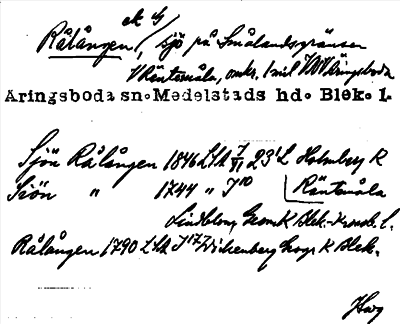 Rålången, sjö på Smålandsgränsen
V Räntemåla, omkr. 1 mil NNV Äringsboda
Äringsboda sn. Medelstads hd. Blek. l.
Sjön Rålången 1846 LSA 23 L Holmberg R
Sjön " 1744 " J10 Räntemåla
Lindblom, Geom K Blek.
Rålången 1790 LSA J17 Wickenberg Geogr K Blek.